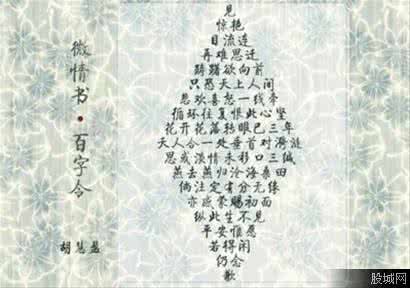 微情书·百字令
胡慧
见
惊艳
目流连
再难思迁
踌躇欲向前
只恐天上人间
悲欢喜怒一线牵
循环往复恨此心坚
花开花落转眼已三年
天人合一处垂首对漪涟
思或浓情未移口三缄
燕去燕归沧海桑田
倘注定有分无缘
亦感蒙赐初面
纵此生不见
平安惟愿
若得闲
仍念
歉
股城网